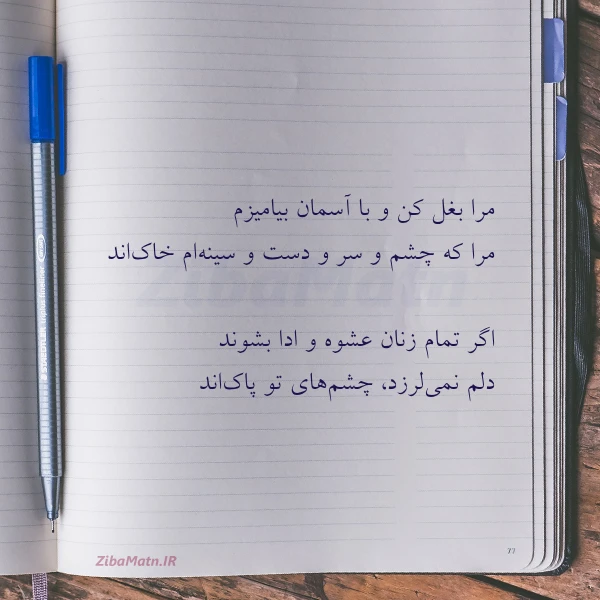 مرا بغل کن و با آسمان بیامیزم
مرا که چشم و سر و دست و سینه‌ام خاک‌اند
اگر تمام زنان عشوه و ادا بشوند
دلم نمی‌لرزد، چشم‌های تو پاک‌اند
ZibaMatn.IR